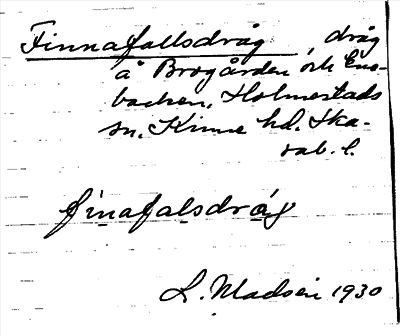 Finnafallsdråg, dråg
å Brogården och Eno-
backen, Holmestads
sn. Kinne hd. Ska-
rab. l.
finafalsdråg
L. Madsén 1930